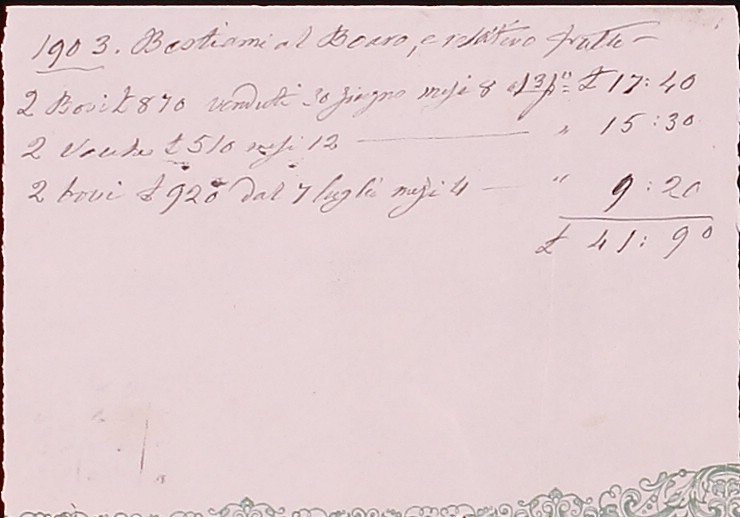 1903. Bestiami al Boaro, e relativo frutto —
2 Bovi £ 870 venduti 30 giugno mesi 8 al 3 p% £ 17:40
2 Vacche £ 510 mesi 12 — " 15:30
2 bovi £ 920 dal 7 luglio mesi 4 — " 9:20
£ 41:90